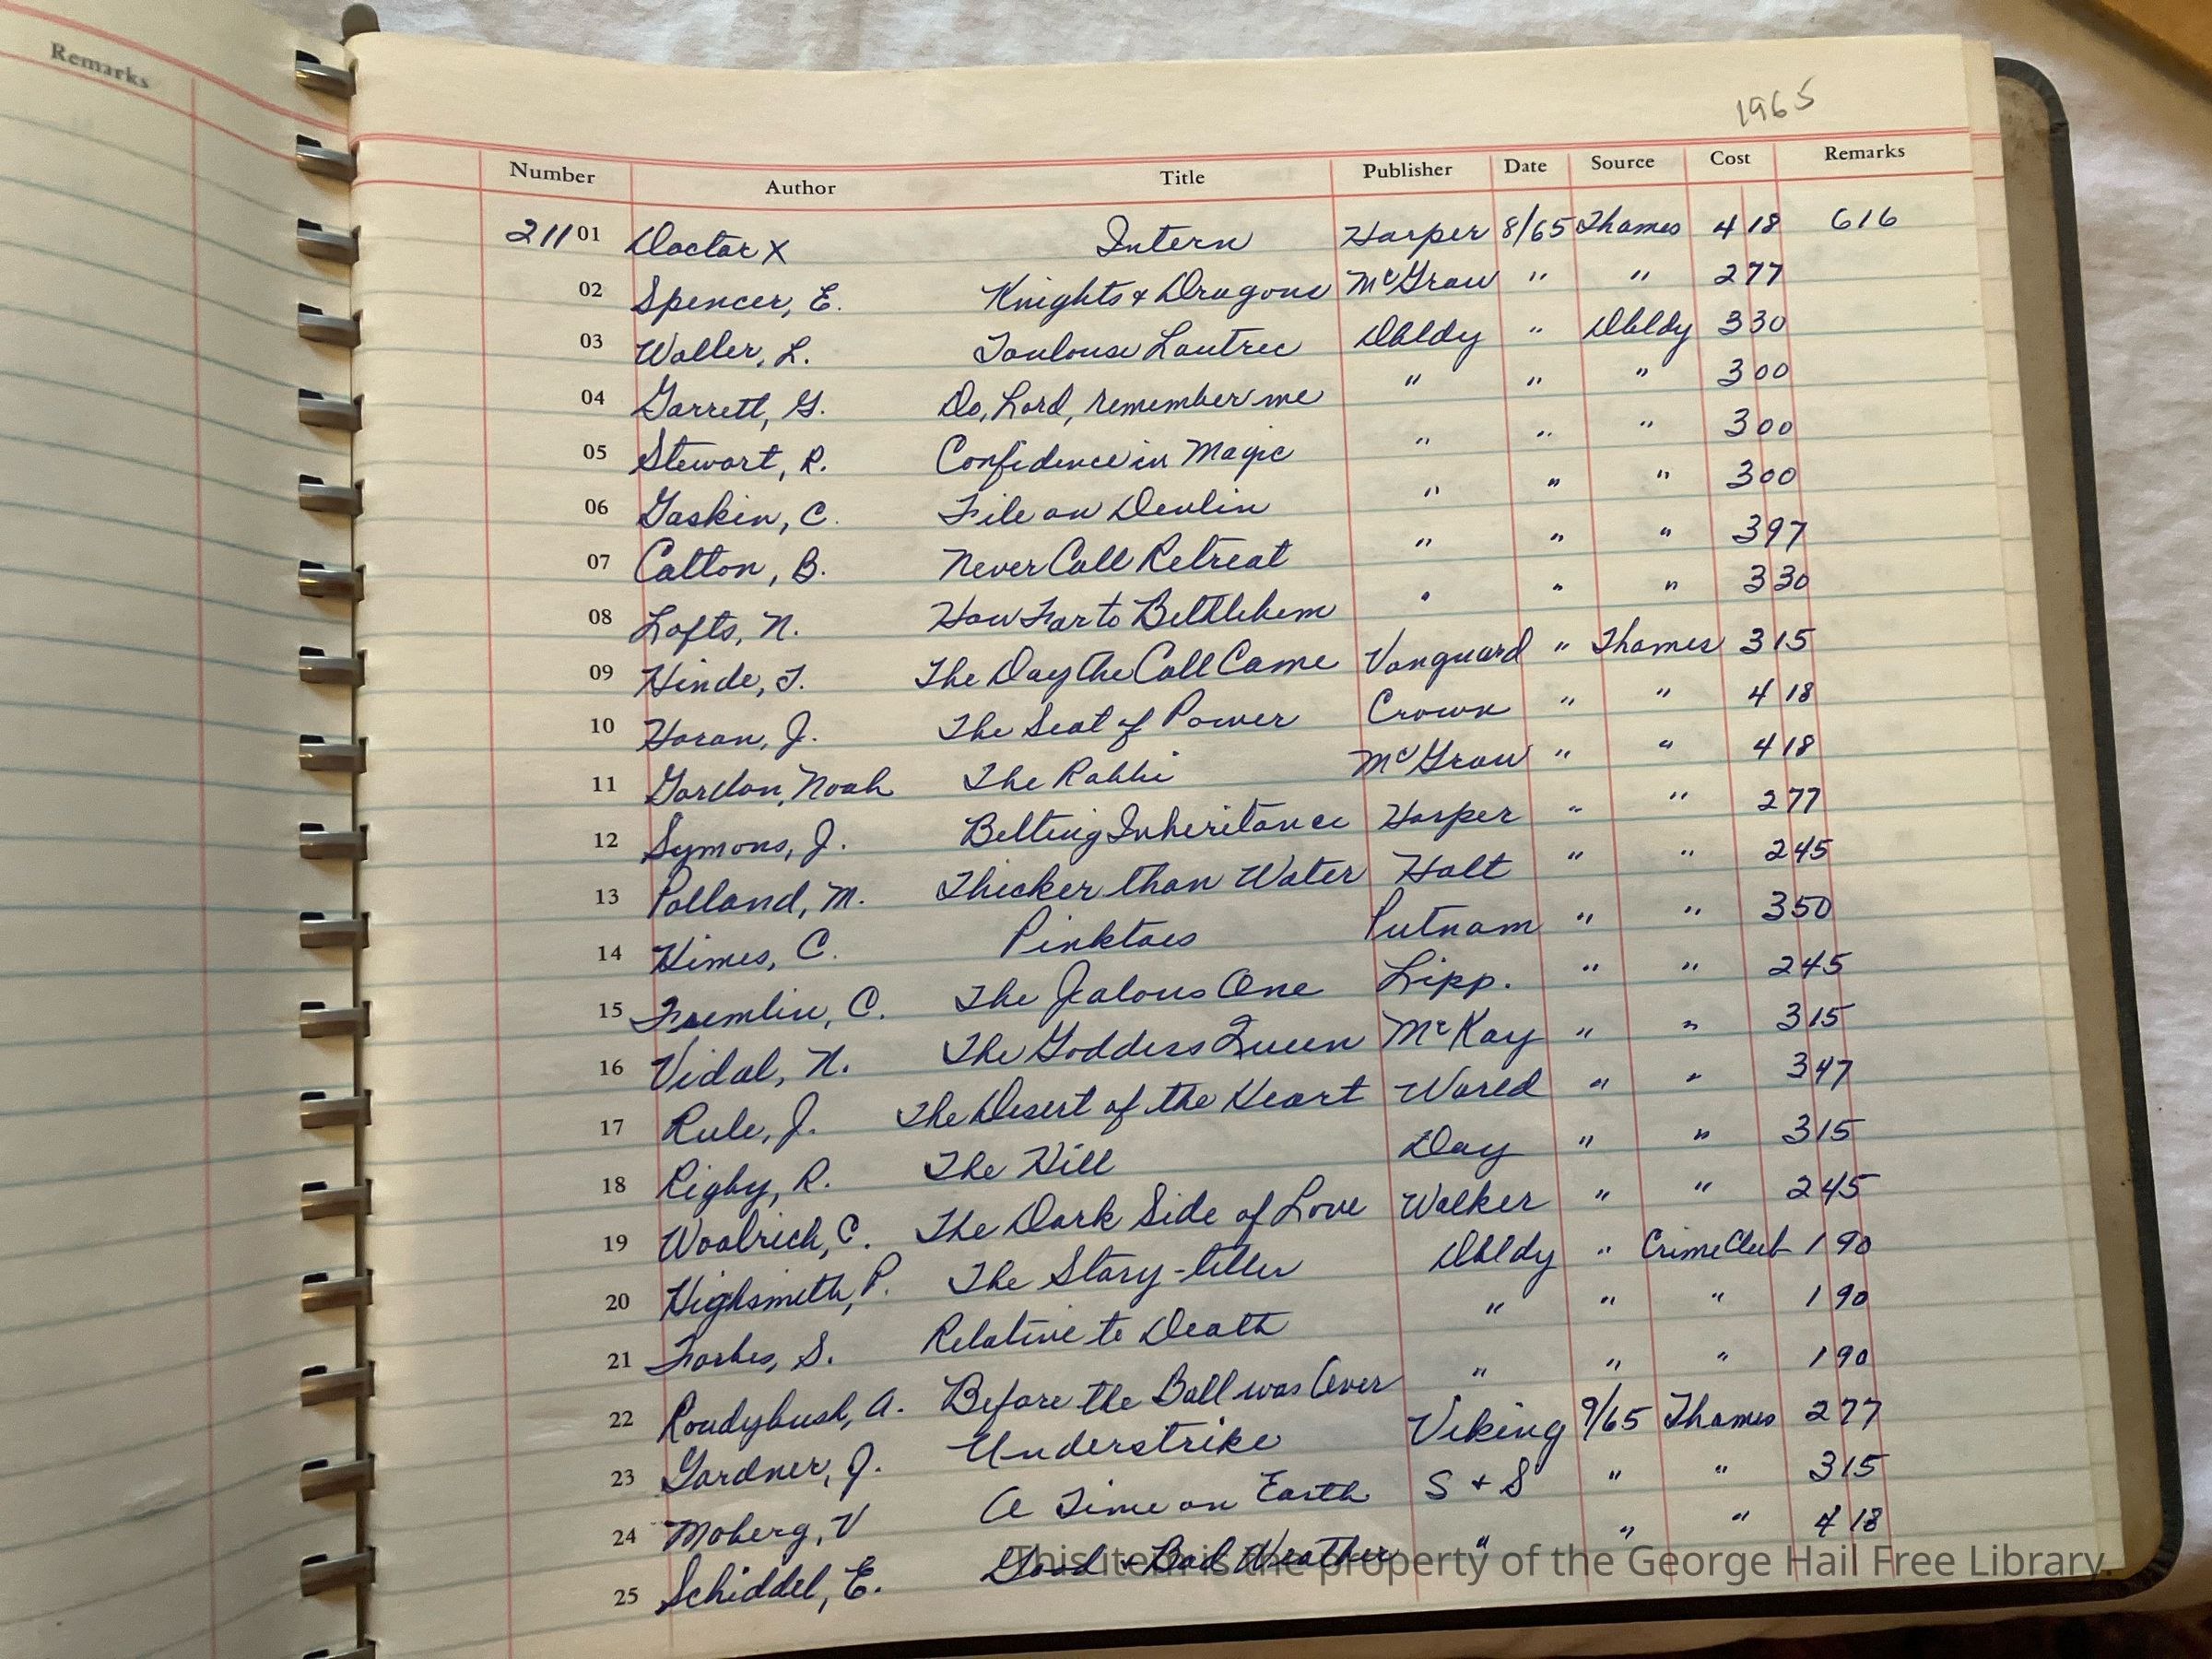 Remarks
1965
Number Author Title Publisher Date Source Cost Remarks
21101 Doctor X Intern Harper 8/65 Thames 4 18 616
02 Spencer, E. Knights & Dragons McGraw " " 2 77
03 Waller, L. Toulouse Lautrec Dbldy " Dbldy 3 30
04 Garrett, G. Do, Lord, remember me " " " 3 00
05 Stewart, R. Confidence in Magic " " " 3 00
06 Gaskin, C. File on Devlin " " " 3 00
07 Catton, B. Never Call Retreat " " " 3 97
08 Lofts, N. How Far to Bethlehem " " " 3 30
09 Hinde, T. The Day the Call Came Vanguard " Thames 3 15
10 Horan, J. The Seat of Power Crown " " 4 18
11 Gordon, Noah The Rabbi McGraw " " 4 18
12 Symons, J. Belting Inheritance Harper " " 2 77
13 Polland, M. Thicker than Water Holt " " 2 45
14 Himes, C. Pinktoes Putnam " " 3 50
15 Fremlin, C. The Jealous One Lipp. " " 2 45
16 Vidal, N. The Goddess Queen McKay " " 3 15
17 Rule, J. The Desert of the Heart World " " 3 47
18 Rigby, R. The Hill Day " " 3 15
19 Woolrich, C. The Dark Side of Love Walker " " 2 45
20 Highsmith, P. The Story-teller Dbldy " Crime Club 1 90
21 Forbes, S. Relative to Death " " " 1 90
22 Roudybush, A. Before the Ball was Over " " " 1 90
23 Gardner, J. Understrike Viking 9/65 Thames 2 77
24 Moberg, V A Time on Earth S & S " " 3 15
25 Schiddel, E. Good & Bad Weather " " " 4 18
This item is the property of the George Hail Free Library.